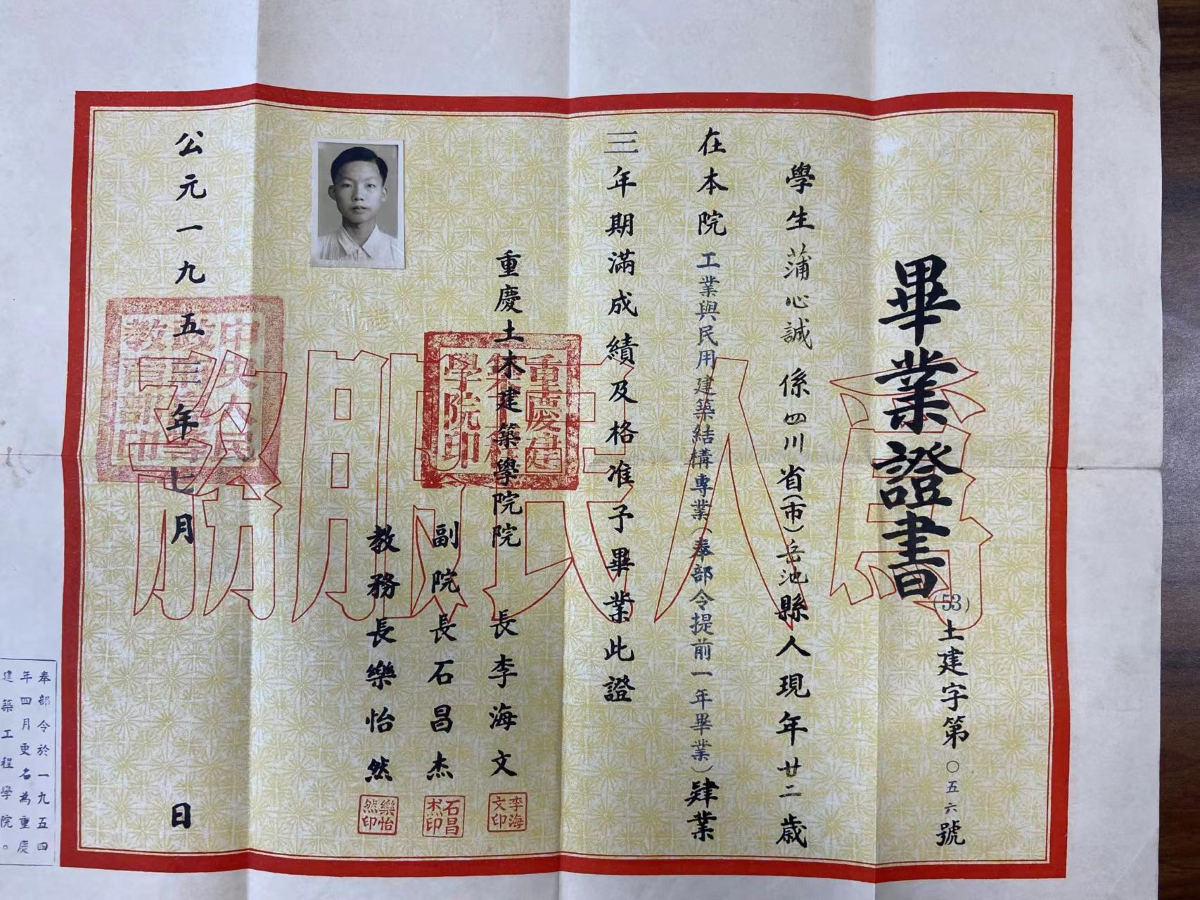 畢業證書
(53)土建字第〇五六號
學生蒲心誠係四川省(市)岳池縣人現年廿二歲
在本院工業與民用建築結構專業(奉部令提前一年畢業)肄業
三年期滿成績及格准予畢業此證
重慶土木建築學院院長李海文
副院長石昌杰
教務長欒怡然
公元一九五三年七月日
為人民服務
重慶建
築工程
學院印
中央人民
政府高等
教育部印
李海
文印
石昌
杰印
欒怡
然印
奉部令於一九五四
年四月更名為重慶
建築工程學院。